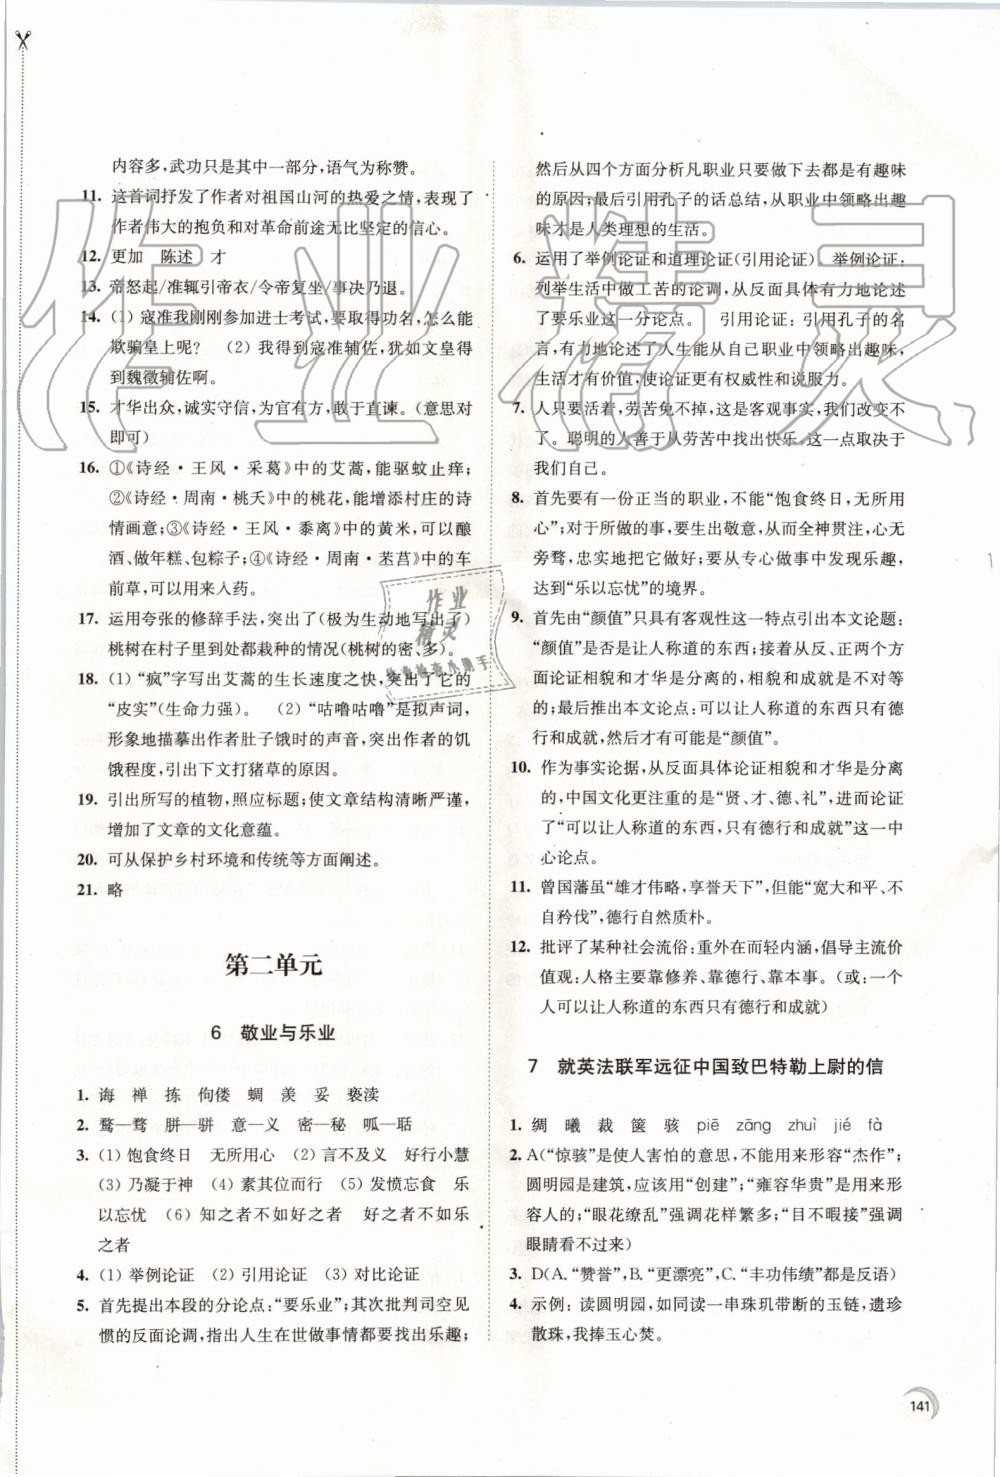 内容多,武功只是其中一部分,语气为称赞。
11. 这首词抒发了作者对祖国山河的热爱之情,表现了
作者伟大的抱负和对革命前途无比坚定的信心。
12. 更加 陈述 才
13. 帝怒起/准辄引帝衣/令帝复坐/事决乃退。
14. (1) 寇准我刚刚参加进士考试,要取得功名,怎么能
欺骗皇上呢? (2) 我得到寇准辅佐,犹如文皇得
到魏徵辅佐啊。
15. 才华出众,诚实守信,为官有方,敢于直谏。(意思对
即可)
16. ①《诗经·王风·采葛》中的艾蒿,能驱蚊止痒;
②《诗经·周南·桃夭》中的桃花,能增添村庄的诗
情画意;③《诗经·王风·黍离》中的黄米,可以酿
酒、做年糕、包粽子;④《诗经·周南·芣苢》中的车
前草,可以用来入药。
17. 运用夸张的修辞手法,突出了(极为生动地写出了)
桃树在村子里到处都栽种的情况(桃树的密、多)。
18. (1) “疯”字写出艾蒿的生长速度之快,突出了它的
“皮实”(生命力强)。 (2) “咕噜咕噜”是拟声词,
形象地描摹出作者肚子饿时的声音,突出作者的饥
饿程度,引出下文打猪草的原因。
19. 引出所写的植物,照应标题;使文章结构清晰严谨,
增加了文章的文化意蕴。
20. 可从保护乡村环境和传统等方面阐述。
21. 略
第二单元
6 敬业与乐业
1. 诲 禅 拣 佝偻 蜩 羡 妥 亵渎
2. 鹜—骛 胼—骈 意—义 密—秘 呱—聒
3. (1) 饱食终日 无所用心 (2) 言不及义 好行小慧
(3) 乃凝于神 (4) 素其位而行 (5) 发愤忘食 乐
以忘忧 (6) 知之者不如好之者 好之者不如乐
之者
4. (1) 举例论证 (2) 引用论证 (3) 对比论证
5. 首先提出本段的分论点:“要乐业”;其次批判司空见
惯的反面论调,指出人生在世做事情都要找出乐趣;
然后从四个方面分析凡职业只要做下去都是有趣味
的原因;最后引用孔子的话总结,从职业中领略出趣
味才是人类理想的生活。
6. 运用了举例论证和道理论证(引用论证)。举例论证:
列举生活中做工苦的论调,从反面具体有力地论述
了要乐业这一分论点。 引用论证:引用孔子的名
言,有力地论述了人生能从自己职业中领略出趣味,
生活才有价值,使论证更有权威性和说服力。
7. 人只要活着,劳苦免不掉,这是客观事实,我们改变不
了。聪明的人善于从劳苦中找出快乐,这一点取决于
我们自己。
8. 首先要有一份正当的职业,不能“饱食终日,无所用
心”;对于所做的事,要生出敬意,从而全神贯注,心无
旁骛,忠实地把它做好;要从专心做事中发现乐趣,
达到“乐以忘忧”的境界。
9. 首先由“颜值”只具有客观性这一特点引出本文论题:
“颜值”是否是可以让人称道的东西;接着从反、正两个方
面论证相貌和才华是分离的,相貌和成就是不对等
的;最后推出本文论点:可以让人称道的东西只有德
行和成就,然后才有可能是“颜值”。
10. 作为事实论据,从反面具体论证相貌和才华是分离
的,中国文化更注重的是“贤、才、德、礼”,进而论证
了“可以让人称道的东西,只有德行和成就”这一中
心论点。
11. 曾国藩虽“雄才伟略,享誉天下”,但能“宽大和平、不
自矜伐”,德行自然质朴。
12. 批评了某种社会流俗:重外在而轻内涵,倡导主流价
值观:人格主要靠修养、靠德行、靠本事。(或:一个
人可以让人称道的东西只有德行和成就)
7 就英法联军远征中国致巴特勒上尉的信
1. 绸 曦 裁 箧 骇 piē zāng zhuì jié fà
2. A(“惊骇”是使人害怕的意思,不能用来形容“杰作”;
圆明园是建筑,应该用“创建”;“雍容华贵”是用来形
容人的;“眼花缭乱”强调花样繁多;“目不暇接”强调
眼睛看不过来)
3. D(A.“赞誉”,B.“更漂亮”,C.“丰功伟绩”都是反语)
4. 示例:读圆明园,如同读一串珠玑带断的玉链,遗珍
散珠,我捧玉心焚。
141
作业精灵
作业
精灵
作业检查小助手